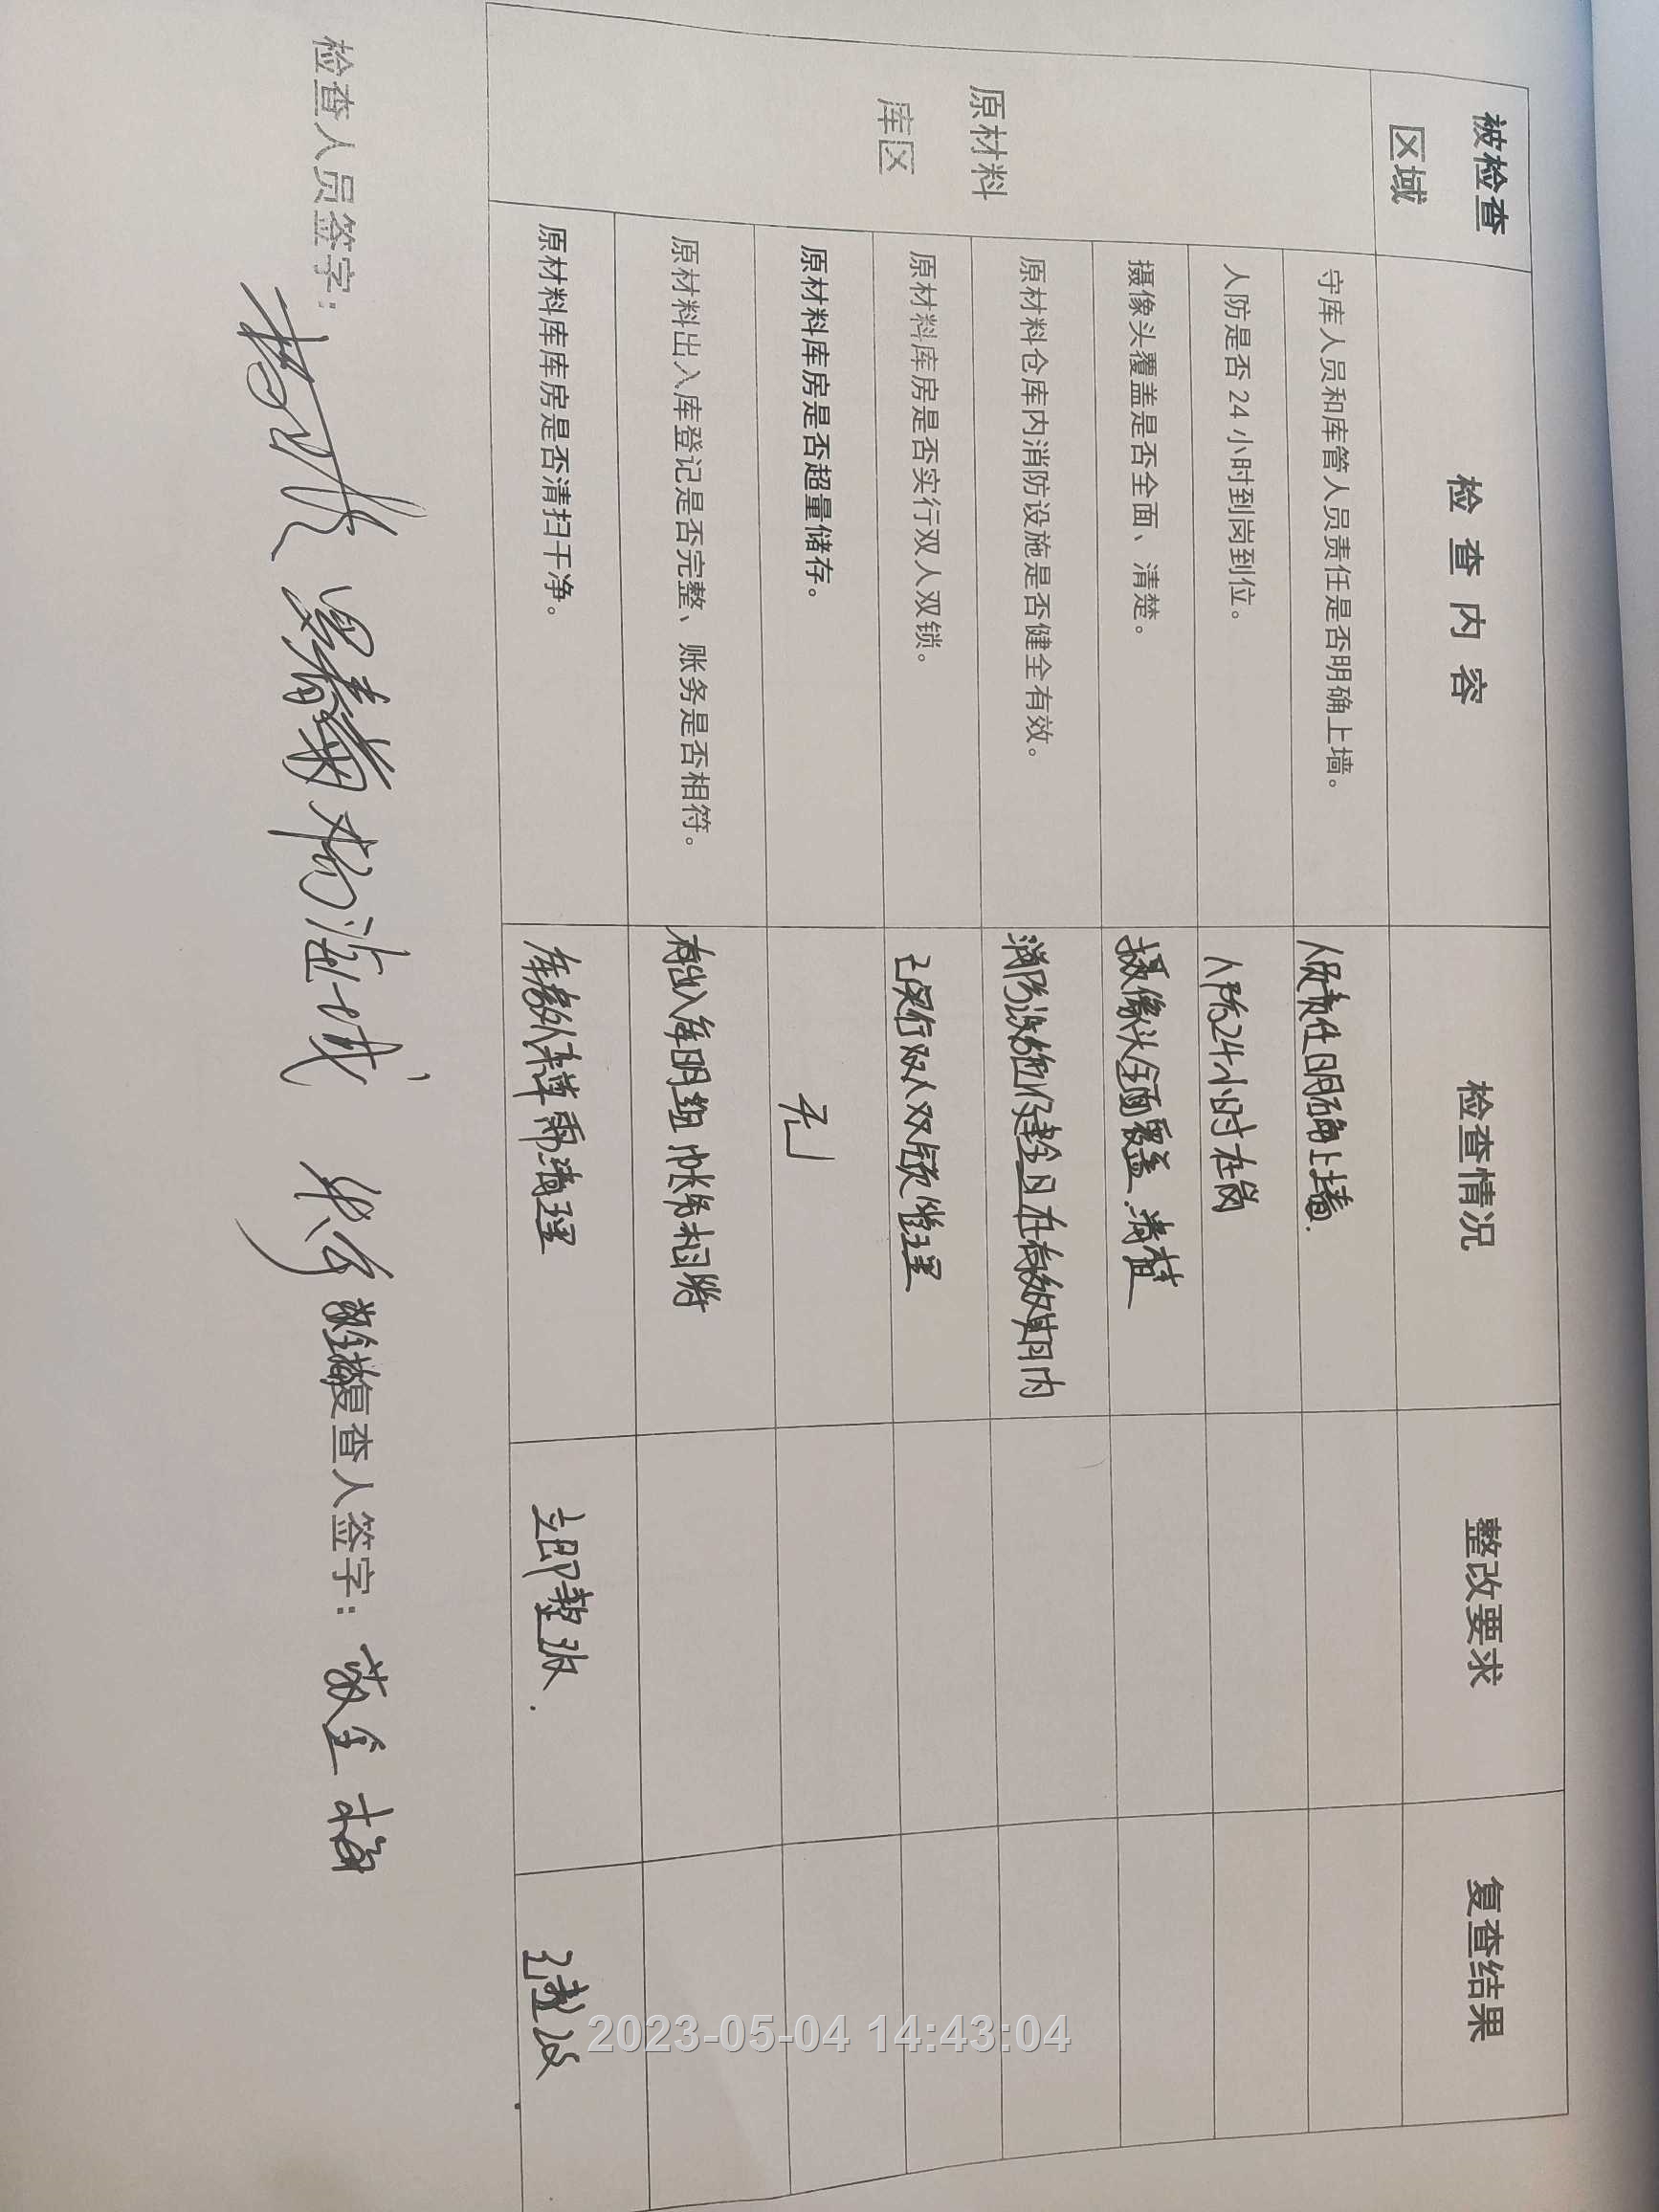 被检查区域 检 查 内 容 检查情况 整改要求 复查结果
原材料库区
守库人员和库管人员责任是否明确上墙。 人员责任明确上墙.
人防是否 24 小时到岗到位。 人防24小时在岗
摄像头覆盖是否全面、清楚。 摄像头全面覆盖.清楚
原材料仓库内消防设施是否健全有效。 消防设施健全且在有效期内
原材料库房是否实行双人双锁。 已实行双人双锁管理
原材料库房是否超量储存。 无
原材料出入库登记是否完整、账务是否相符。 有出入库明细 帐务相符
原材料库库房是否清扫干净。 库房外杂草需清理 立即整改. 已整改
检查人员签字: 复查人签字:
2023-05-04 14:43:04